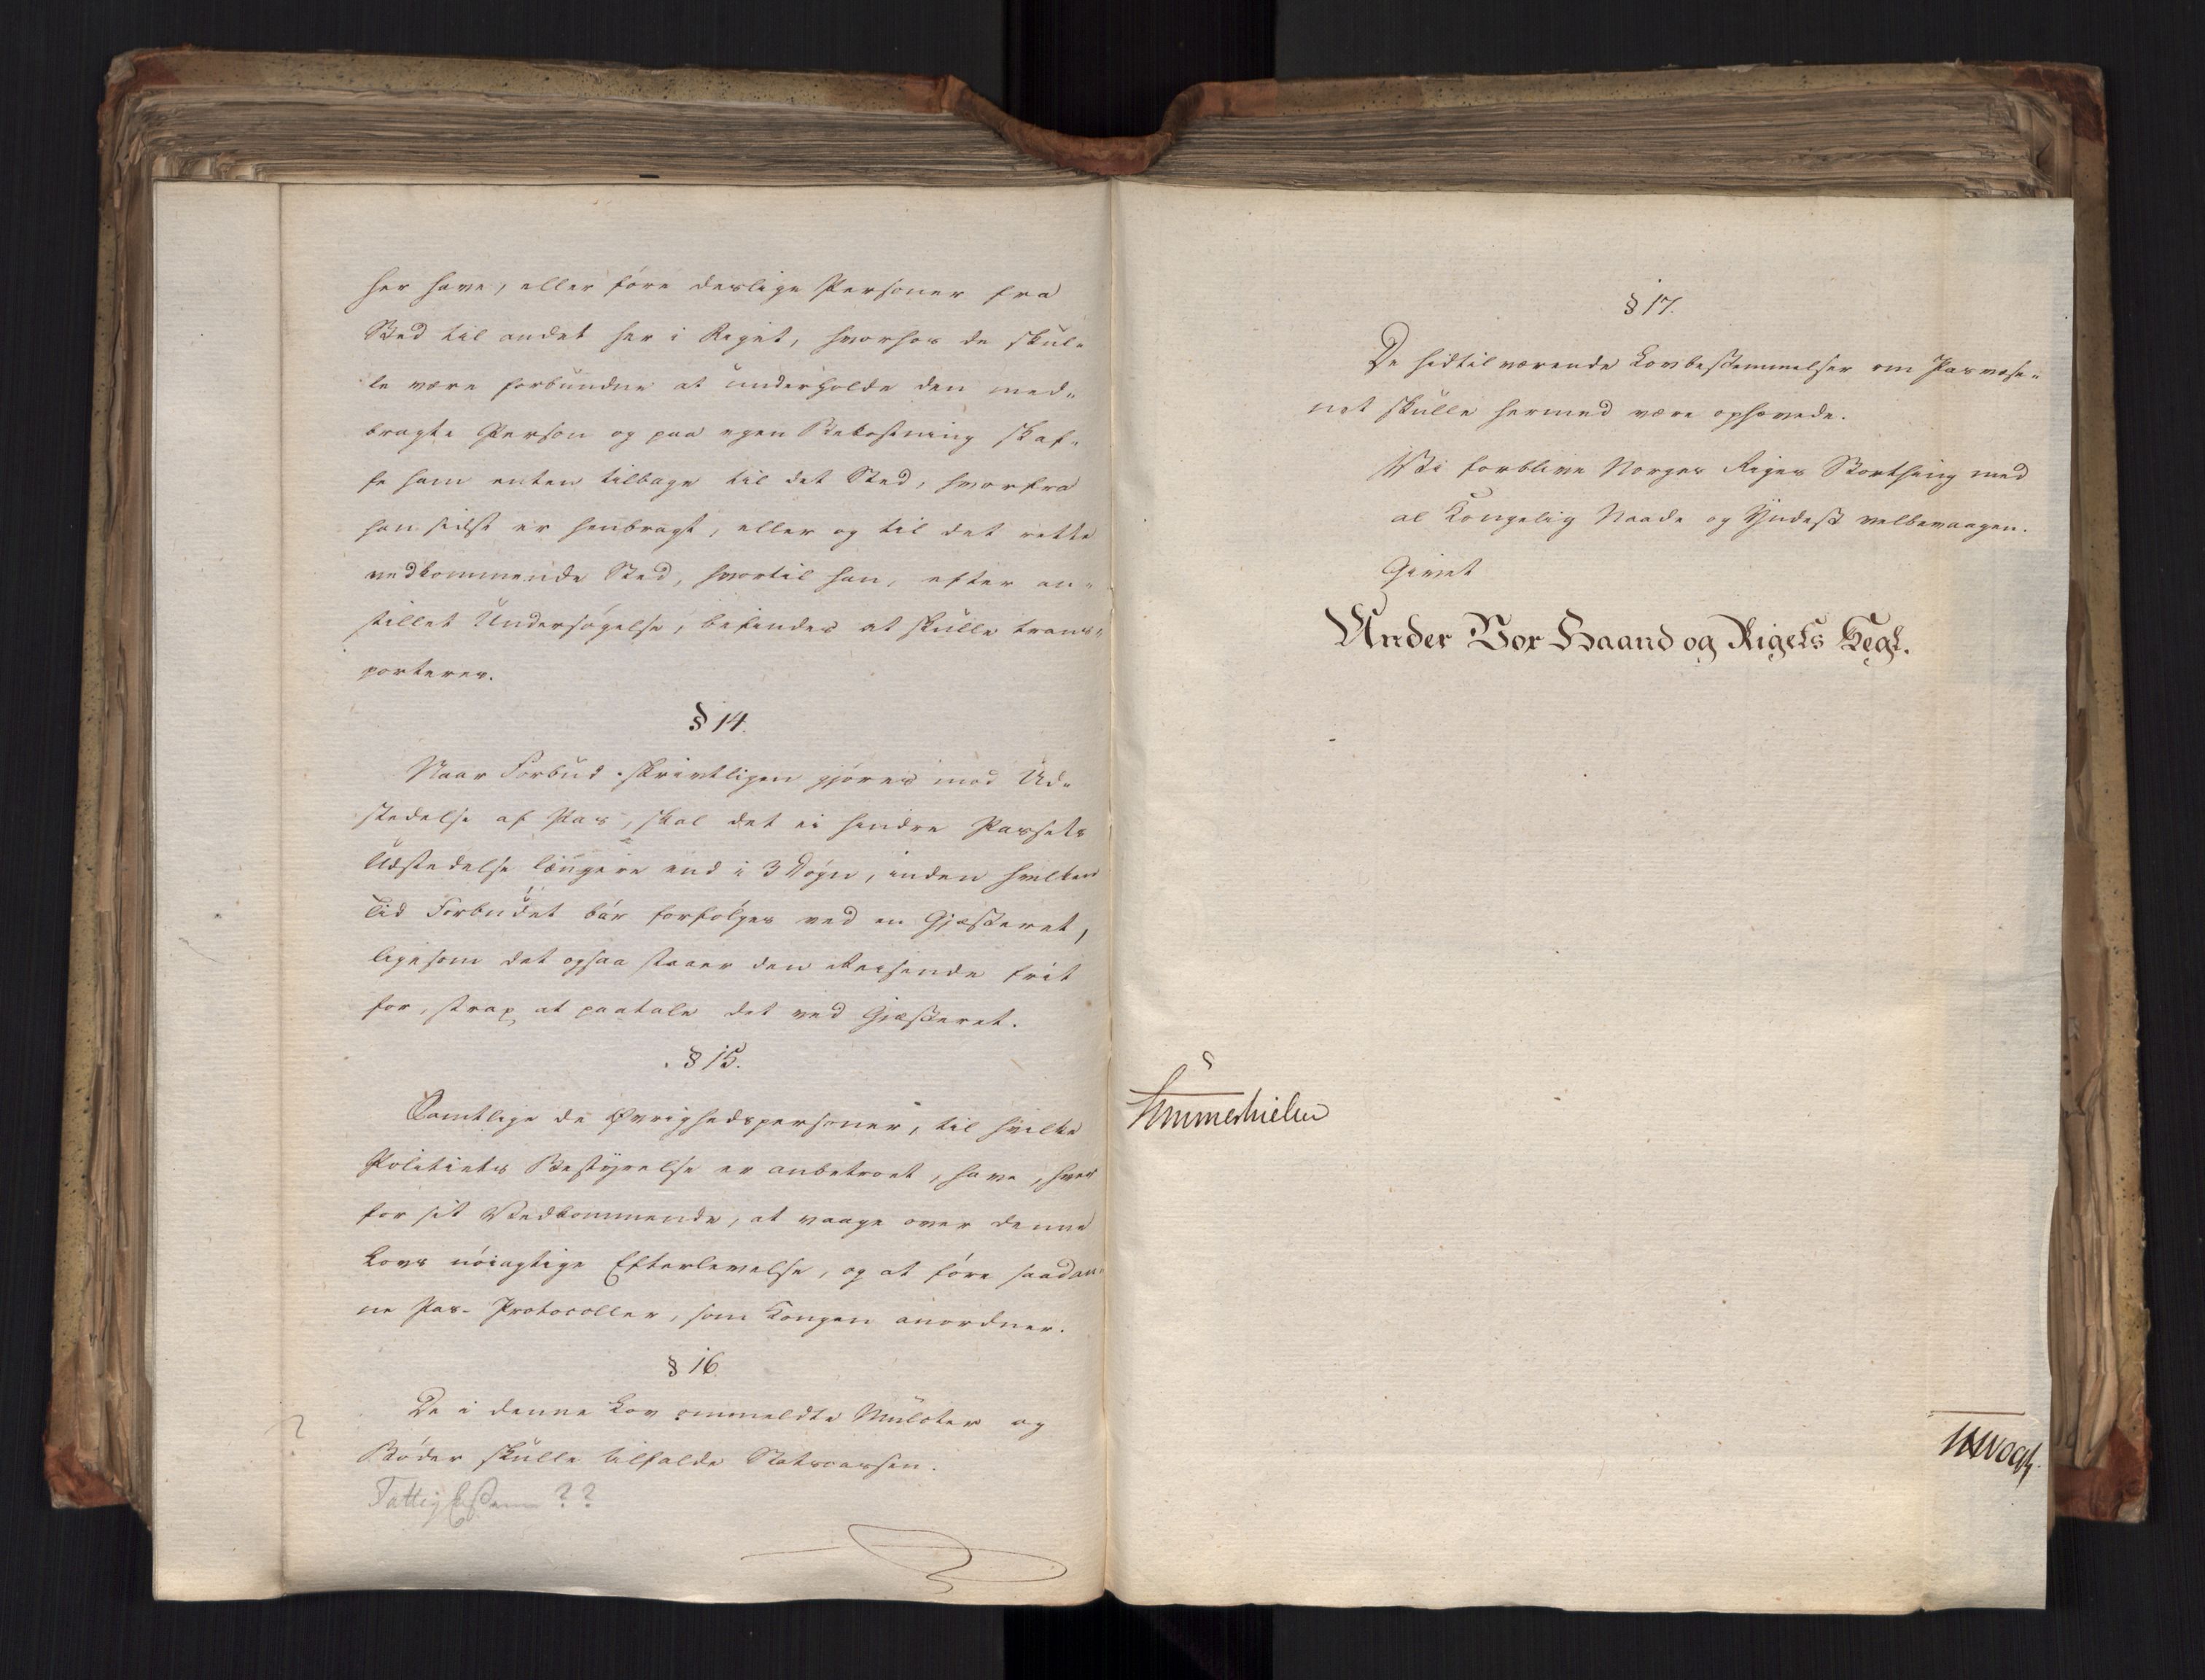 her have, eller føre deslige Personer fra
Sted til andet her i Riget, hvorhos de skul-
le være forbundne at underholde den med-
bragte Person og paa egen Bekostning skaf-
fe ham enten tilbage til det Sted, hvorfra
han sidst er henbragt, eller og til det rette
vedkommende Sted, hvortil han, efter an-
stillet Undersøgelse, befindes at skulle trans-
porteres.
§ 14.
Naar Forbud skrivtligen gjøres mod Ud-
stedelse af Pas, skal det ei hindre Passets
Udstedelse længere end i 3 Døgn, inden hvilken
Tid Forbudet bør forfølges ved en Gjæsteret,
ligesom det ogsaa staaer den Reisende frit
for, strax at paatale det ved Gjæsteret.
§ 15.
Samtlige de Øvrighedspersoner, til hvilke
Politiets Bestyrelse er anbetroet, have, hver
for sit Vedkommende, at vaage over denne
Lovs nøiagtige Efterlevelse, og at føre saadan-
ne Pas-Protocoller, som Kongen anordner.
§ 16.
De i denne Lov ommeldte Mulcter og
Bøder skulle tilfalde Statscassen.
??
§ 17.
De hidtilværende Lovbestemmelser om Pasvæse-
net skulle hermed være ophævede.
Vi forblive Norges Riges Storthing med
al Kongelig Naade og Yndest velbevaagen.
Givet
Under Vor Haand og Rigets Segl.
Sommerhielm
Vogt